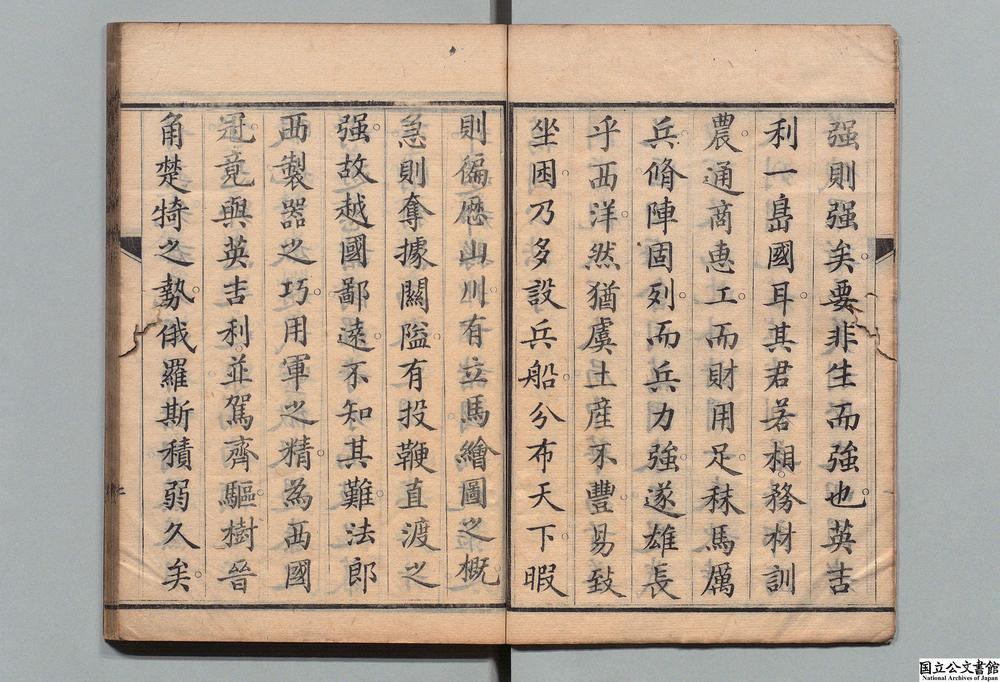 强則强矣要非生而強也英吉
利一島國耳其君若相務材訓
農通商惠工而財用足秣馬厲
兵脩陣固列而兵力強遂雄長
乎西洋然猶虞土産不豐易致
坐困乃多設兵船分布天下暇
則徧歷山川有立馬繪圖之概
急則奪據關隘有投鞭直渡之
强故越國鄙遠不知其難法郎
西製器之巧用軍之精為西國
冠竟與英吉利並駕齊驅樹晉
角楚犄之勢俄羅斯積弱久矣
国立公文書館
National Archives of Japan